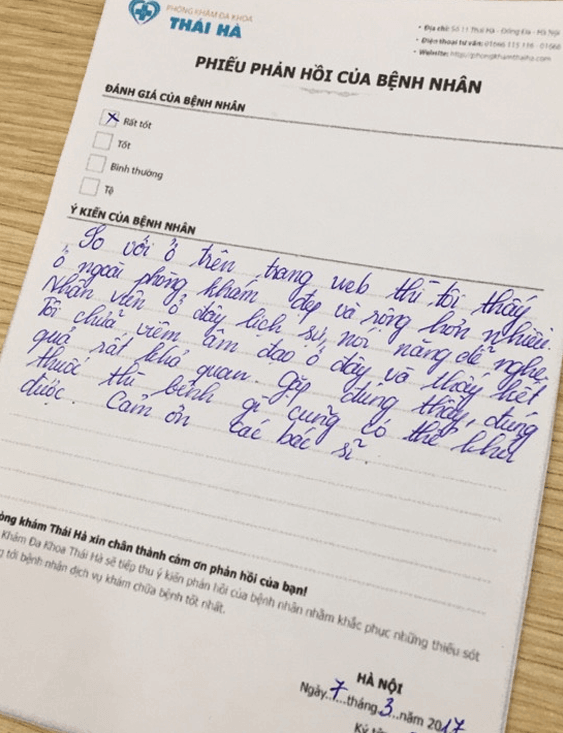 PHÒNG KHÁM ĐA KHOA
THÁI HÀ
• Địa chỉ: Số 11 Thái Hà - Đống Đa - Hà Nội
• Điện thoại tư vấn: 01666 115 116 - 01666
• Website: http://phongkhamthaiha.com
PHIẾU PHẢN HỒI CỦA BỆNH NHÂN
ĐÁNH GIÁ CỦA BỆNH NHÂN
X Rất tốt
Tốt
Bình thường
Tệ
Ý KIẾN CỦA BỆNH NHÂN
So với ở trên trang web thì tôi thấy
ở ngoài phòng khám đẹp và rộng hơn nhiều.
Nhân viên ở đây lịch sự, nói năng dễ nghe.
Tôi chữa viêm âm đạo ở đây và thấy kết
quả rất khả quan. Gặp đúng thầy, đúng
thuốc thì bệnh gì cũng có thể khỏi
được. Cảm ơn các bác sĩ.
òng khám Thái Hà xin chân thành cảm ơn phản hồi của bạn!
Khám Đa Khoa Thái Hà sẽ tiếp thu ý kiến phản hồi của bệnh nhân nhằm khắc phục những thiếu sót
g tới bệnh nhân dịch vụ khám chữa bệnh tốt nhất.
HÀ NỘI
Ngày..7...tháng.3..năm 2017